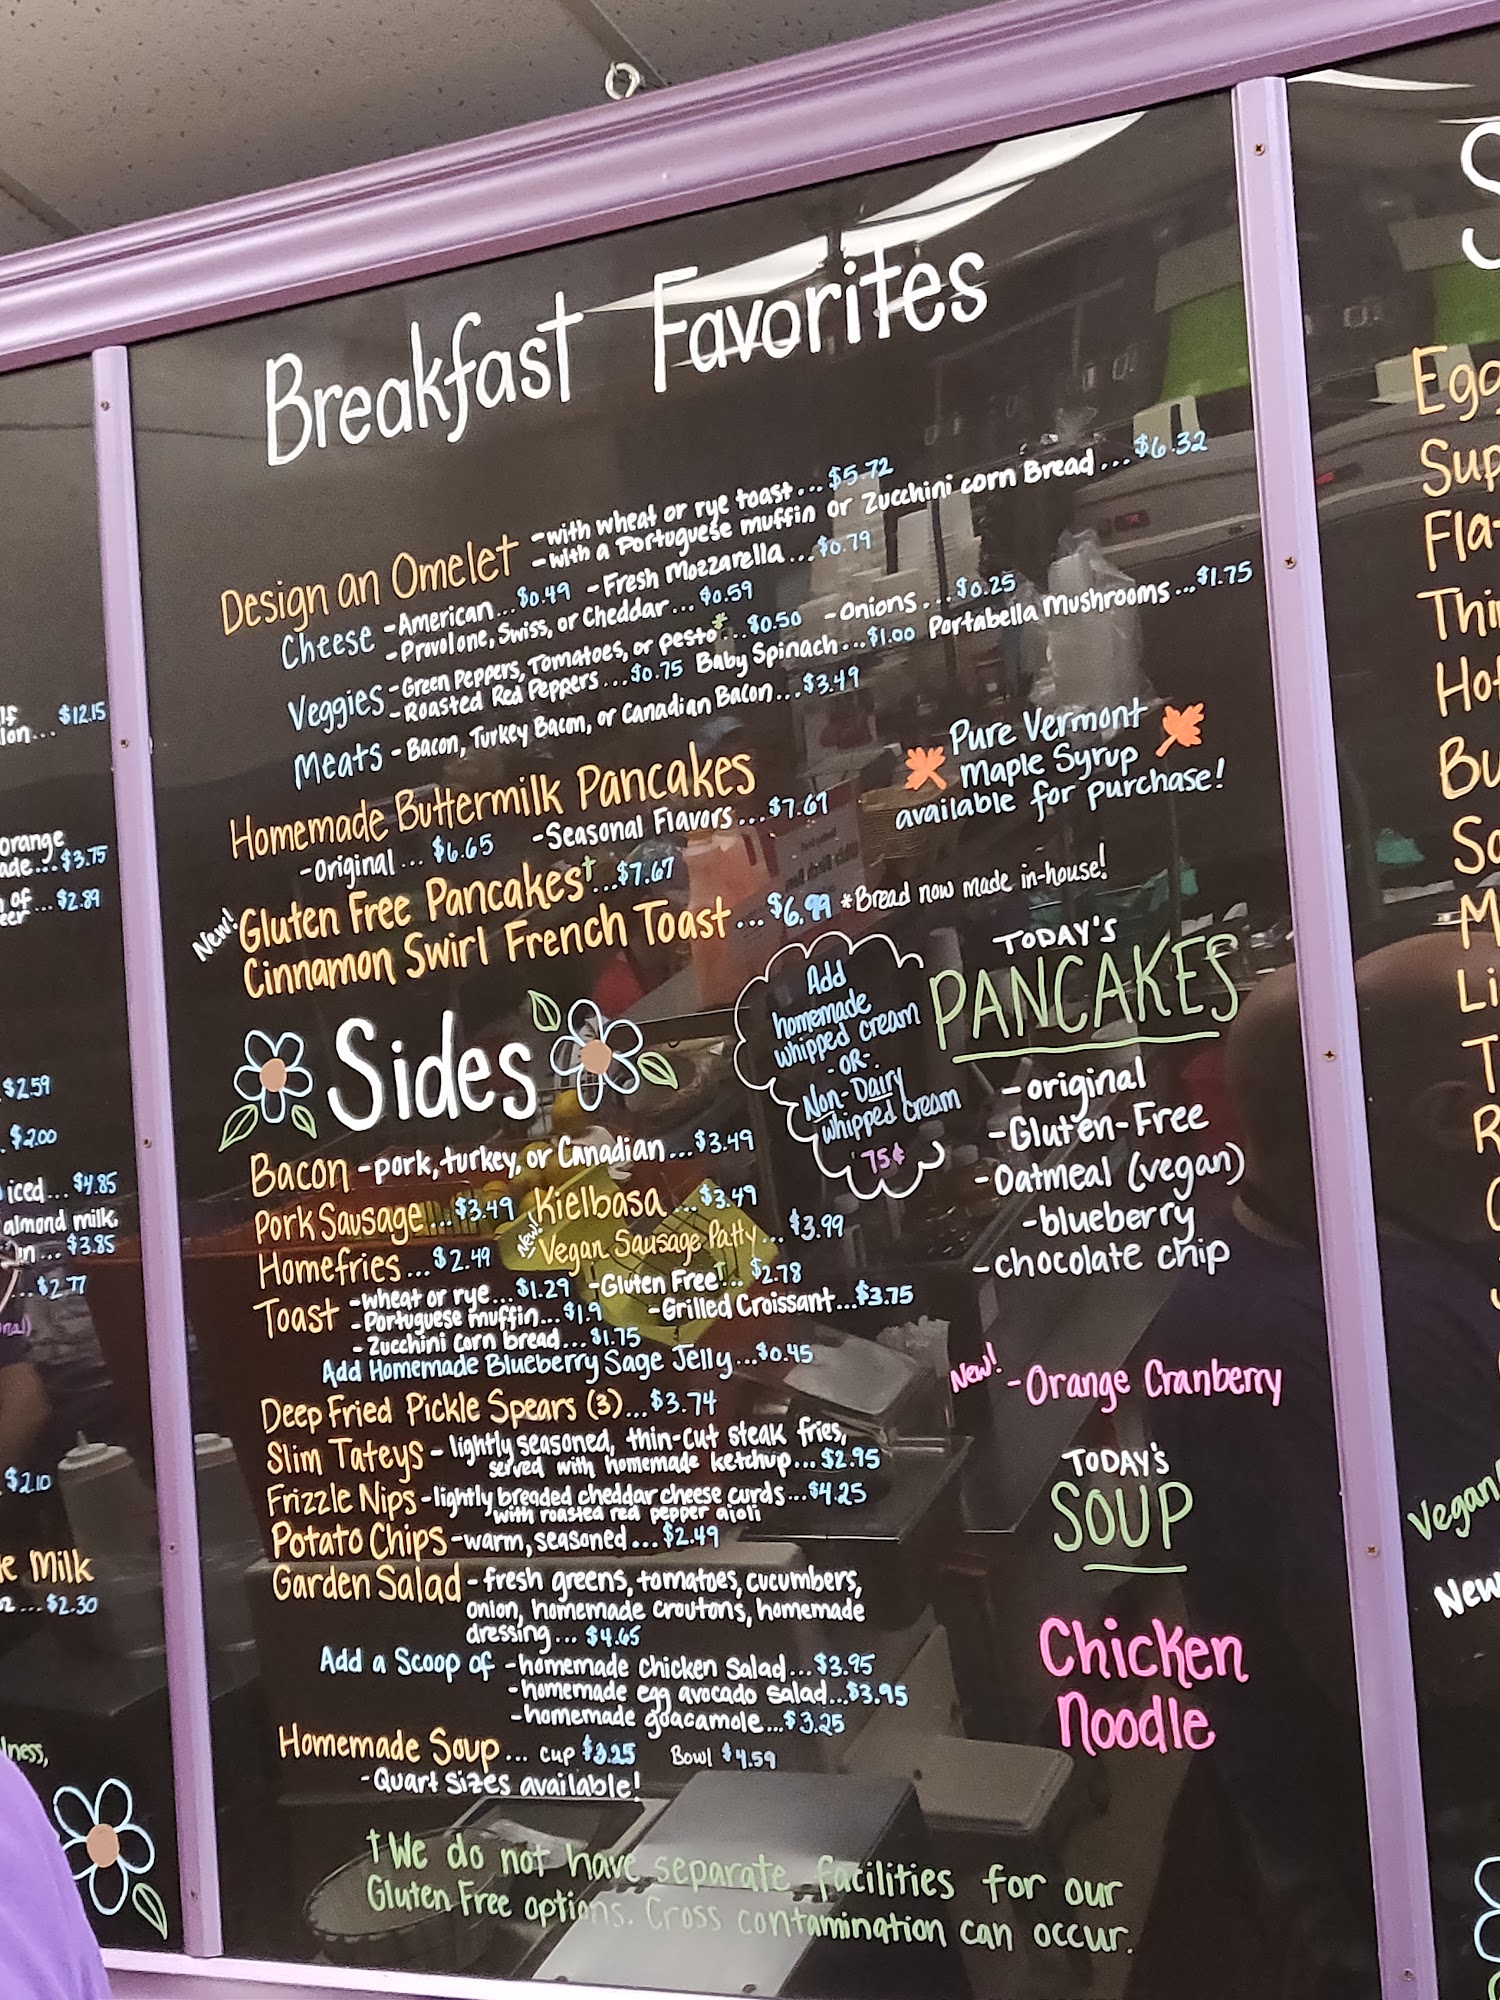 Breakfast Favorites
Design an Omelet -with wheat or rye toast... $5.72
-with a Portuguese muffin or Zucchini corn Bread... $6.32
Cheese -American... $0.49 -Fresh Mozzarella... $0.79
-Provolone, Swiss, or Cheddar... $0.59
Veggies -Green Peppers, Tomatoes, or pesto*... $0.50 -Onions... $0.25
-Roasted Red Peppers... $0.75 Baby Spinach... $1.00 Portabella Mushrooms... $1.75
Meats -Bacon, Turkey Bacon, or Canadian Bacon... $3.49
Pure Vermont
Maple Syrup
available for purchase!
Homemade Buttermilk Pancakes
-Original... $6.65 -Seasonal Flavors... $7.67
New! Gluten Free Pancakes†... $7.67
Cinnamon Swirl French Toast... $6.99 *Bread now made in-house!
Add
homemade
whipped cream
-OR-
Non-Dairy
whipped cream
75¢
TODAY'S
PANCAKES
-original
-Gluten-Free
-Oatmeal (vegan)
-blueberry
-chocolate chip
New! -Orange Cranberry
TODAY'S
SOUP
Chicken
Noodle
Sides
Bacon -pork, turkey, or Canadian... $3.49
Pork Sausage... $3.49 Kielbasa... $3.49
Homefries... $2.49 New! Vegan Sausage Patty... $3.99
Toast -wheat or rye... $1.29 -Gluten Free†... $2.78
-Portuguese muffin... $1.9 -Grilled Croissant... $3.75
-Zucchini Corn bread... $1.75
Add Homemade Blueberry Sage Jelly... $0.45
Deep Fried Pickle Spears (3)... $3.74
Slim Tateys - lightly seasoned, thin-cut steak fries,
served with homemade ketchup... $2.95
Frizzle Nips -lightly breaded cheddar cheese curds... $4.25
with roasted red pepper aioli
Potato Chips -warm, seasoned... $2.49
Garden Salad -fresh greens, tomatoes, cucumbers,
onion, homemade croutons, homemade
dressing... $4.65
Add a Scoop of -homemade chicken salad... $3.95
-homemade egg avocado salad... $3.95
-homemade guacamole... $3.25
Homemade Soup... cup $3.25 Bowl $4.59
-Quart sizes available!
†We do not have separate facilities for our
Gluten Free options. Cross contamination can occur.
$12.15
orange
ade... $3.75
of
$2.89
$2.59
$2.00
iced... $4.85
almond milk,
$3.85
$2.77
$2.10
Milk
$2.30
Vegan
New